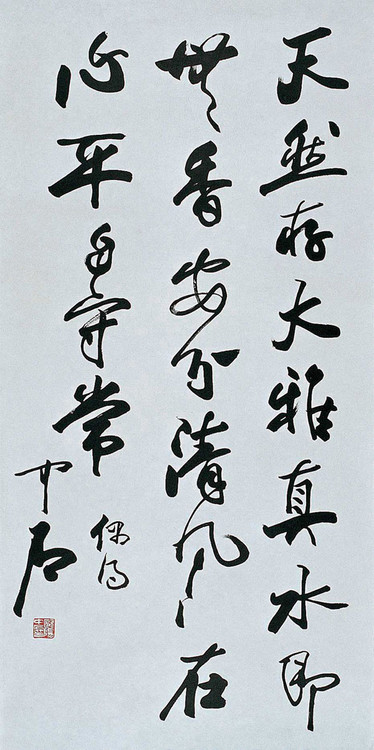 天然存大雅真水即
無香安分清風在
心平自守常
偶得
中石